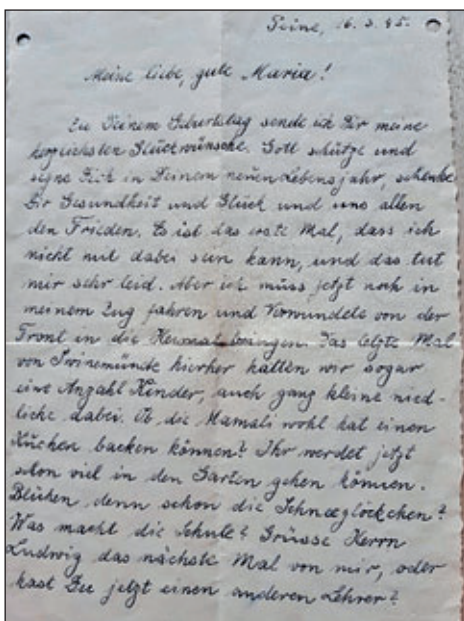 Peine, 16.3.45.
Meine liebe, gute Maria!
Zu Deinem Geburtstag sende ich Dir meine
herzlichsten Glückwünsche. Gott schütze und
segne Dich in Deinem neuen Lebensjahr, schenke
Dir Gesundheit und Glück und uns allen
den Frieden. Es ist das erste Mal, dass ich
nicht mit dabei sein kann, und das tut
mir sehr leid. Aber ich muss jetzt noch in
meinem Zug fahren und Verwundete von der
Front in die Heimat bringen. Das letzte Mal
von Swinemünde hierher hatten wir sogar
eine Anzahl Kinder, auch ganz kleine nied-
liche dabei. Ob die Mamali wohl hat einen
Kuchen backen können? Ihr werdet jetzt
schon viel in den Garten gehen können.
Blühen denn schon die Schneeglöckchen?
Was macht die Schule? Grüsse Herrn
Ludwig das nächste Mal von mir, oder
hast Du jetzt einen anderen Lehrer?